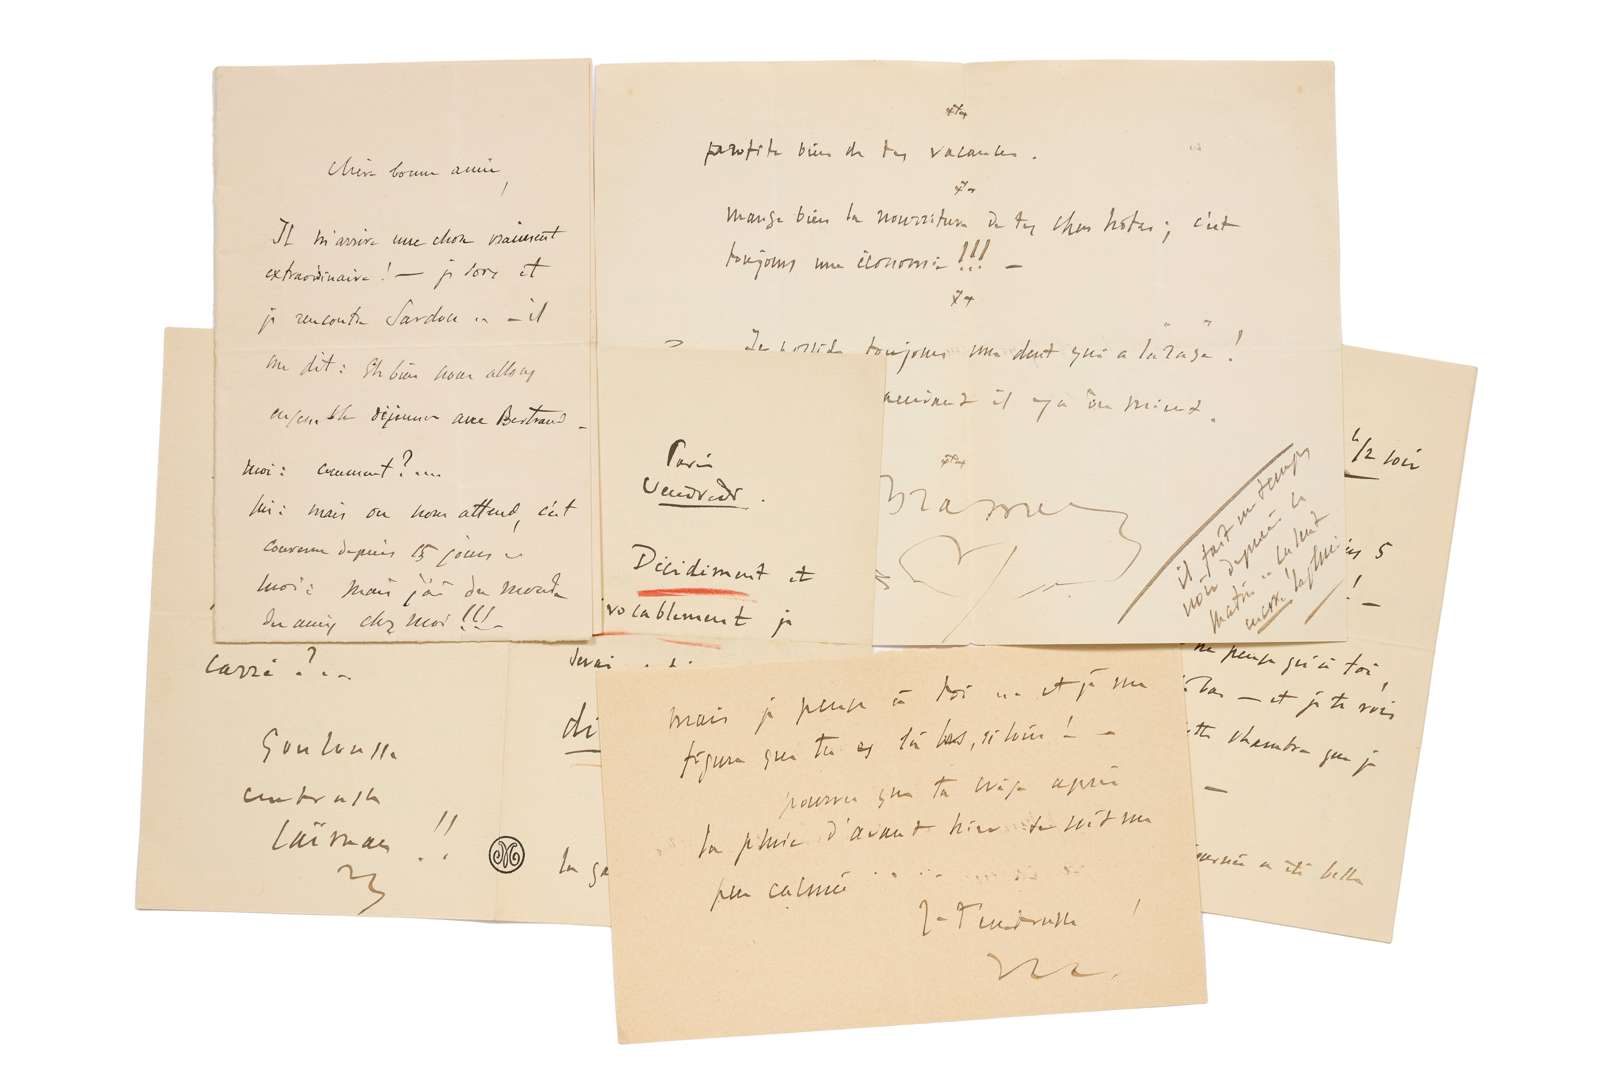 Chère bonne amie,
Il m'arrive une chose vraiment
extraordinaire ! — je sors et
je rencontre Sardou .. — il
me dit : Eh bien nous allons
ensemble déjeuner avec Bertrand —
moi : comment ? ...
lui : mais on nous attend, c'est
convenu depuis 15 jours —
moi : mais j'ai du monde
des amis chez moi !!! —
profite bien de tes vacances .
mange bien la nourriture de tes chers hôtes ; c'est
toujours une économie !!! —
Je possède toujours une dent qui a la rage !
il y a du mieux .
il fait un temps
noir depuis le
matin ..
Paris
Vendredi .
Décidément et
vocablement je
di
la ga
carré ? ...
embrasse
!!
mais je pense à toi .. et je me
figure que tu es là bas, si loin ! —
pourvu que ta crise après
la pluie d'avant hier se soit un
peu calmée
Je t'embrasse !
1/2 soir
5
! —
ne pense qu'à toi,
bas — et je te vois
chambre que je
—
journée a été belle